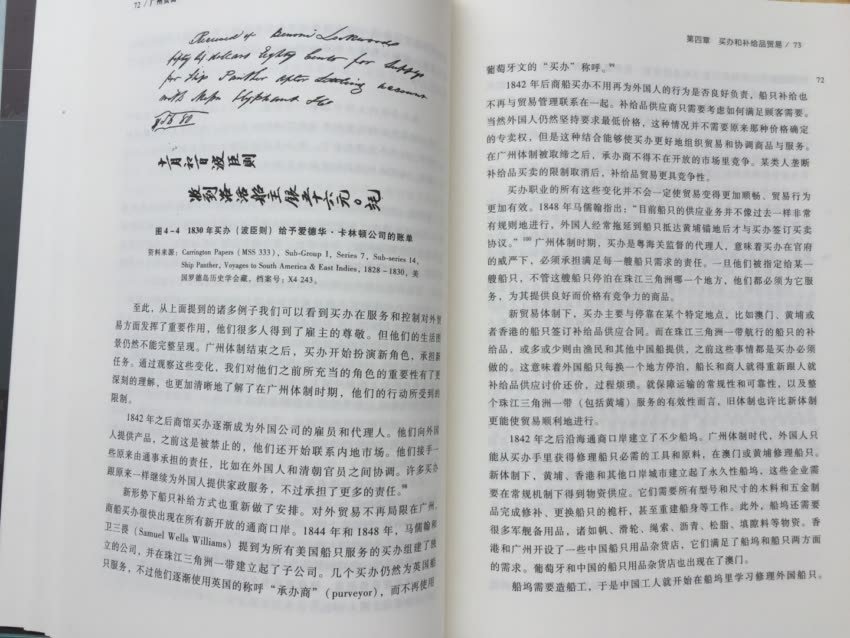 72 / 广州贸易
Received of Benoni Lockwood
fifty six dollars Eighty Cents for Supplys
for Ship Panther after Settling account
with
十一月初一日波臣则
收到洛活船主银五十六元〇八毛
图4-4 1830年买办(波臣则)给予爱德华·卡林顿公司的账单
资料来源:Carrington Papers (MSS 333), Sub-Group 1, Series 7, Sub-series 14,
Ship Panther, Voyages to South America & East Indies, 1828-1830, 美
国罗德岛历史学会藏,档案号:X4 243。
至此,从上面提到的诸多例子我们可以看到买办在服务和控制对外贸
易方面发挥了重要作用,他们很多人得到了雇主的尊敬。但他们的生活图
景仍然不能完整呈现。广州体制结束之后,买办开始扮演新角色,承担新
任务。通过观察这些变化,我们对他们之前所充当的角色的重要性有了更
深刻的理解,也更加清晰地了解了在广州体制时期,他们的行动所受到的
限制。
1842年之后商馆买办逐渐成为外国公司的雇员和代理人。他们向外国
人提供产品,之前这是被禁止的,他们还开始联系内地市场。他们接手一
些原来由通事承担的责任,比如在外国人和清朝官员之间协调。许多买办
跟原来一样继续为外国人提供家政服务,不过承担了更多的责任。⁹⁸
新形势下船只补给方式也重新做了安排。对外贸易不再局限在广州,
商船买办很快出现在所有新开放的通商口岸。1844年和1848年,马儒翰和
卫三畏(Samuel Wells Williams)提到为所有美国船只服务的买办组建了独
立的公司,并在珠江三角洲一带建立起了子公司。几个买办仍然为英国船
只服务,不过他们逐渐使用英国的称呼“承办商”(purveyor),而不再使用
第四章 买办和补给品贸易 / 73
葡萄牙文的“买办”称呼。⁹⁹
72
1842年后商船买办不用再为外国人的行为是否良好负责,船只补给也
不再与贸易管理联系在一起。补给品供应商只需要考虑如何满足顾客需要。
当然外国人仍然坚持要求最低价格,这种情况并不需要原来那种价格确定
的专卖权,但是这种结合能够使买办更好地组织贸易和协调商品与服务。
在广州体制被取缔之后,承办商不得不在开放的市场里竞争。某类人垄断
补给品买卖的限制取消后,补给品贸易更具竞争性。
买办职业的所有这些变化并不会一定使贸易变得更加顺畅、贸易行为
更加有效。1848年马儒翰指出:“目前船只的供应业务并不像过去一样非常
有规则地进行,外国人经常拖延到船只抵达黄埔锚地后才与买办签订买卖
协议。”¹⁰⁰广州体制时期,买办是粤海关监督的代理人,意味着买办在官府
的威严下,必须承担满足每一艘船只需求的责任。一旦他们被指定给某一
艘船只,不管这艘船只停泊在珠江三角洲哪一个地方,他们都必须为它服
务,为其提供良好而价格有竞争力的商品。
新贸易体制下,买办主要与停靠在某个特定地点,比如澳门、黄埔或
者香港的船只签订补给品供应合同。而在珠江三角洲一带航行的船只的补
给品,或多或少则由渔民和其他中国船提供,之前这些事情都是买办必须
做的。这意味着外国船只每换一个地方停泊,船长和商人就得重新跟人就
补给品供应讨价还价,过程烦琐。就保障运输的常规性和可靠性,以及整
个珠江三角洲一带(包括黄埔)服务的有效性而言,旧体制也许比新体制
更能使贸易顺利地进行。
1842年之后沿海通商口岸建立了不少船坞。广州体制时代,外国人只
能从买办手里获得修理船只必需的工具和原料,在澳门或黄埔修理船只。
新体制下,黄埔、香港和其他口岸城市建立起了永久性船坞,这些企业需
要在常规机制下得到物资供应。它们需要所有型号和尺寸的木料和五金制
品完成修补、更换船只的桅杆,甚至重建船身等工作。此外,船坞还需要
很多军舰备用品,诸如帆、滑轮、绳索、沥青、松脂、填隙料等物资。香
港和广州开设了一些中国船只用品杂货店,它们满足了船坞和船只两方面
的需求。葡萄牙和中国的船只用品杂货店也出现在了澳门。
船坞需要造船工,于是中国工人就开始在船坞里学习修理外国船只。